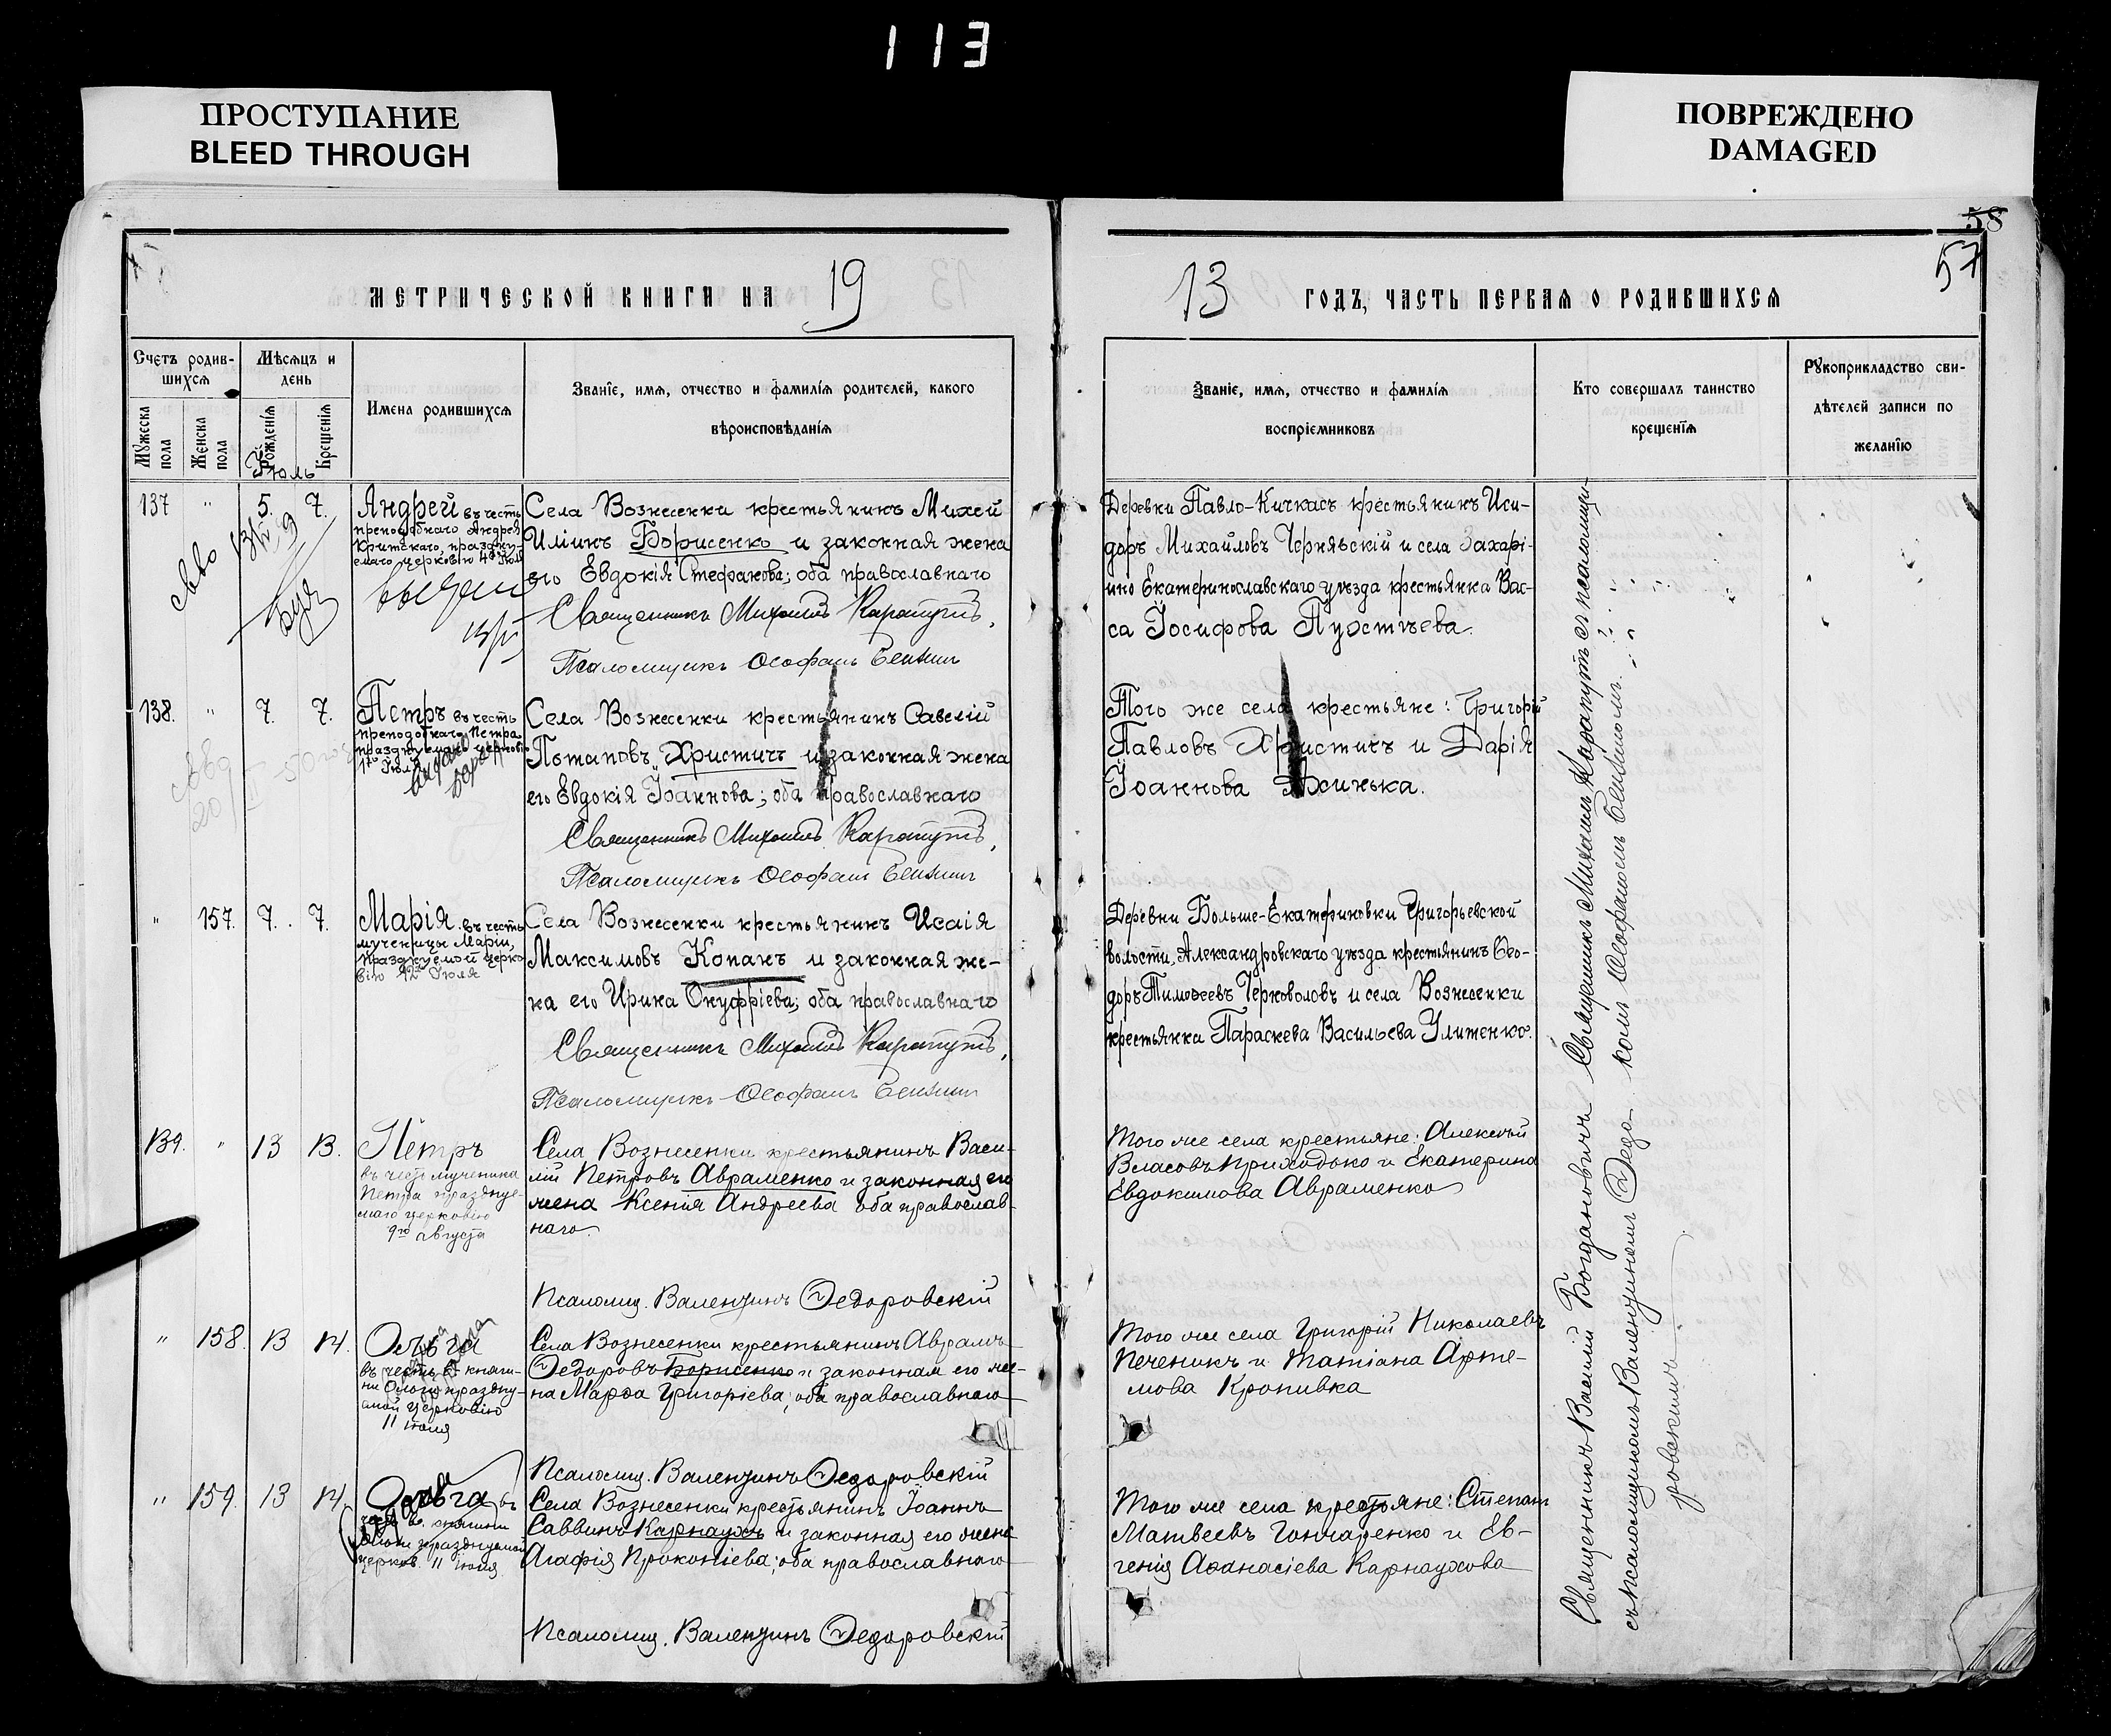 113
ПРОСТУПАНИЕ
BLEED THROUGH
ПОВРЕЖДЕНО
DAMAGED
58
57
МЕТРИЧЕСКОЙ КНИГИ НА 19
13 ГОДЪ, ЧАСТЬ ПЕРВАЯ О РОДИВШИХСЯ
Счетъ родив-
шихся
Мужеска
пола
Женска
пола
Мѣсяцъ и
день
Рожденія
Крещенія
Имена родившихся
Званіе, имя, отчество и фамилія родителей, какого
вѣроисповѣданія
Званіе, имя, отчество и фамилія
воспріемниковъ
Кто совершалъ таинство
крещенія
Рукоприкладство сви-
дѣтелей записи по
желанію
Іюль
137 " 5. 7.
Андрей въ честь
преподобнаго Андрея
Критскаго, праздну-
емаго церковію 4го Іюля
Села Вознесенки крестьянинъ Михей
Иліинъ Борисенко и законная жена
его Евдокія Стефанова; оба православнаго
Священникъ Михаилъ Карапутъ,
Псаломщикъ Ѳеофанъ
Деревни Павло-Кичкасъ крестьянинъ Иси-
доръ Михайловъ Чернявскій и села Захарі-
ино Екатеринославскаго уѣзда крестьянка Вас-
са Іосифова Пухтѣева.
138. " 7. 7.
Петръ въ честь
преподобнаго Петра
празднуемаго церковію
Іюля
Села Вознесенки крестьянинъ Савелій
Потаповъ Христичъ и законная жена
его Евдокія Іоаннова; оба православнаго
Священникъ Михаилъ Карапутъ,
Псаломщикъ Ѳеофанъ
Того же села крестьяне: Григорій
Павловъ Христичъ и Дарія
Іоаннова
" 157. 7. 7.
Марія въ честь
мученицы Маріи,
празднуемой церко-
вію 12 Іюля
Села Вознесенки крестьянинъ Исаія
Максимовъ Копанъ и законная же-
на его Ирина Онуфріева; оба православнаго
Священникъ Михаилъ Карапутъ,
Псаломщикъ Ѳеофанъ
Деревни Больше-Екатериновки Григорьевской
волости, Александровскаго уѣзда крестьянинъ Ѳео-
доръ Тимоѳеевъ Черноволовъ и села Вознесенки
крестьянка Параскева Васильева Улитенко.
139. " 13 13.
Петръ
въ честь мученика
Петра празднуе-
маго церковію
9го августа
Села Вознесенки крестьянинъ Васи-
лій Петровъ Авраменко и законная его
жена Ксенія Андреева оба православ-
наго.
Псаломщ. Валентинъ Ѳедоровскій
Того же села крестьяне: Алексѣй
Власовъ Приходько и Екатерина
Евдокимова Авраменко
" 158. 13 14.
Ольга
въ честь в. княги-
ни Ольги праздну-
емой церковію
11 іюля
Села Вознесенки крестьянинъ Аврамъ
Ѳедоровъ Борисенко и законная его же-
на Марѳа Григоріева; оба православнаго
Псаломщ. Валентинъ Ѳедоровскій
Того же села Григорій Николаевъ
Печеникъ и Татіана Арте-
мова Кропивка
" 159. 13 14.
Ольга въ
честь в. княгини
Ольги празднуемой
церков. 11 іюля
Села Вознесенки крестьянинъ Іоаннъ
Саввинъ Карнаухъ и законная его жена
Агафія Прокопіева; оба православнаго
Псаломщ. Валентинъ Ѳедоровскій
Того же села крестьяне: Степанъ
Матвеевъ Гончаренко и Ев-
генія Аѳанасіева Карнаухова
Священникъ Михаилъ Карапутъ съ псаломщи-
комъ Ѳеофаномъ
Священникъ Василій Богдановичъ
съ псаломщикомъ Валентиномъ Ѳедо-
ровскимъ